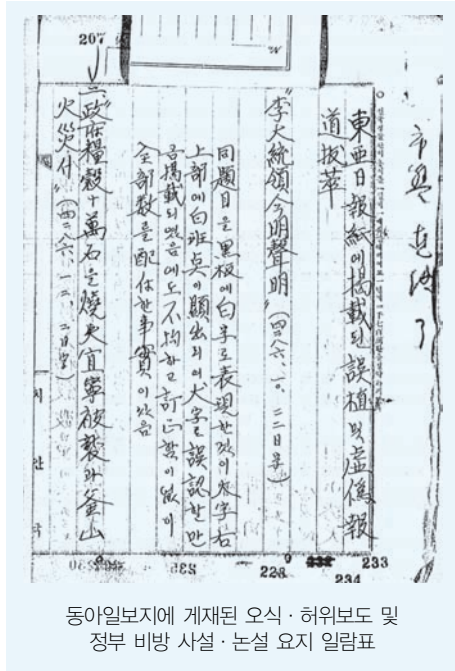 207
市警 史 了
東亞日報紙에揭載된誤植및虛僞報
道拔萃
"李大統領今明聲明" (四二八六、一〇、二二日字)
同題目을黑板에白字로表現한것이大字右
上部에白班点이顯出되여犬字로誤認할만
큼揭載되였음에도不拘하고訂正함이없이
全部數를配付한事實이있음
二、"政府糧穀十萬石을燒失宜寧被襲과釜山
火災서" (四二八六、一二、二日字)
치안국
235
228
232
233
234
동아일보지에 게재된 오식 · 허위보도 및
정부 비방 사설 · 논설 요지 일람표